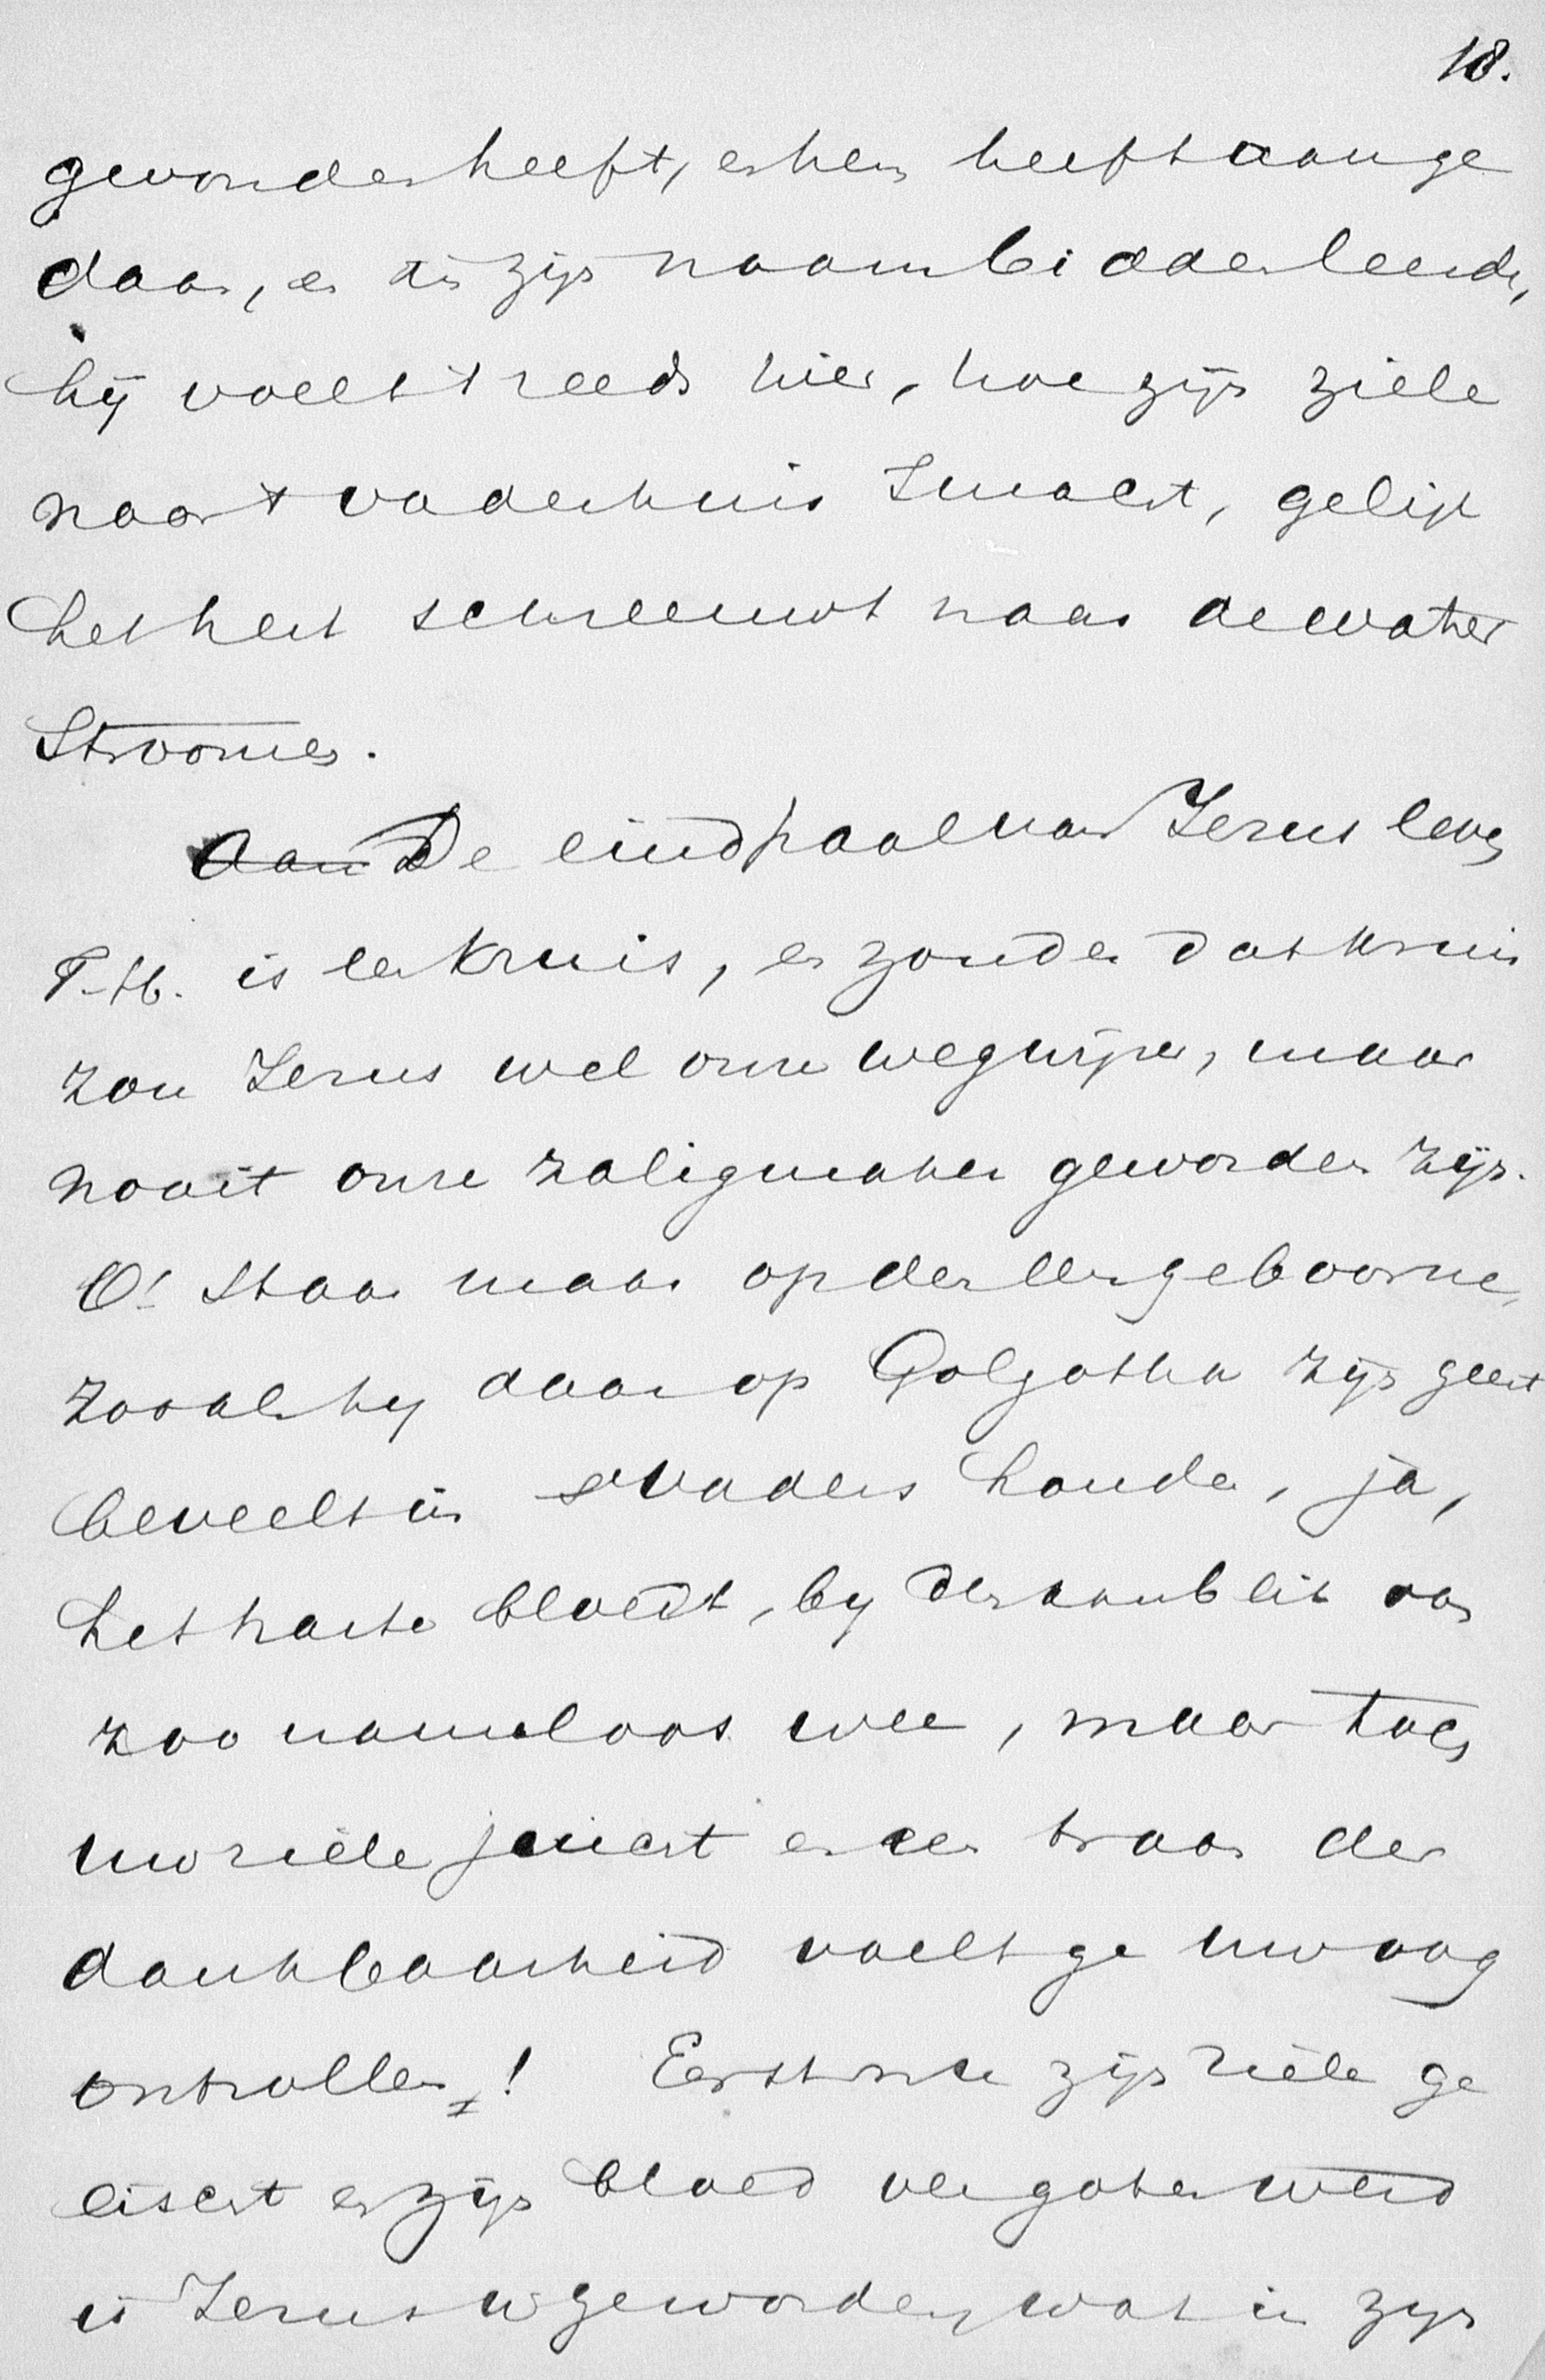 18.
gevonden heeft, en hem heeft aange
daan, en in zijn naam bidden leerde,
hij voelt 't reeds hier, hoe zijn ziele
naar 't vaderhuis smacht, gelijk
het hert schreeuwt naar de water
Stroomen.
Aan De eindpaal van Jezus leven
T. H. is een kruis, en zonder dat kruis
zou Jezus wel onze wegwijzer, maar
nooit onze zaligmaker geworden zijn.
O! Staar maar op den eengeboorne,
zooals hij daar op Golgotha zijn geest
beveelt in svaders handen, ja,
het harte bloedt, bij den aanblik van
zoo nameloos wee, maar toch
uw ziele juicht en een traan der
dankbaarheid voelt ge uw oog
ontrollen!
Eerst nu zijn ziele ge
eischt en zijn bloed vergoten werd
is Jezus u geworden, wat in zijn